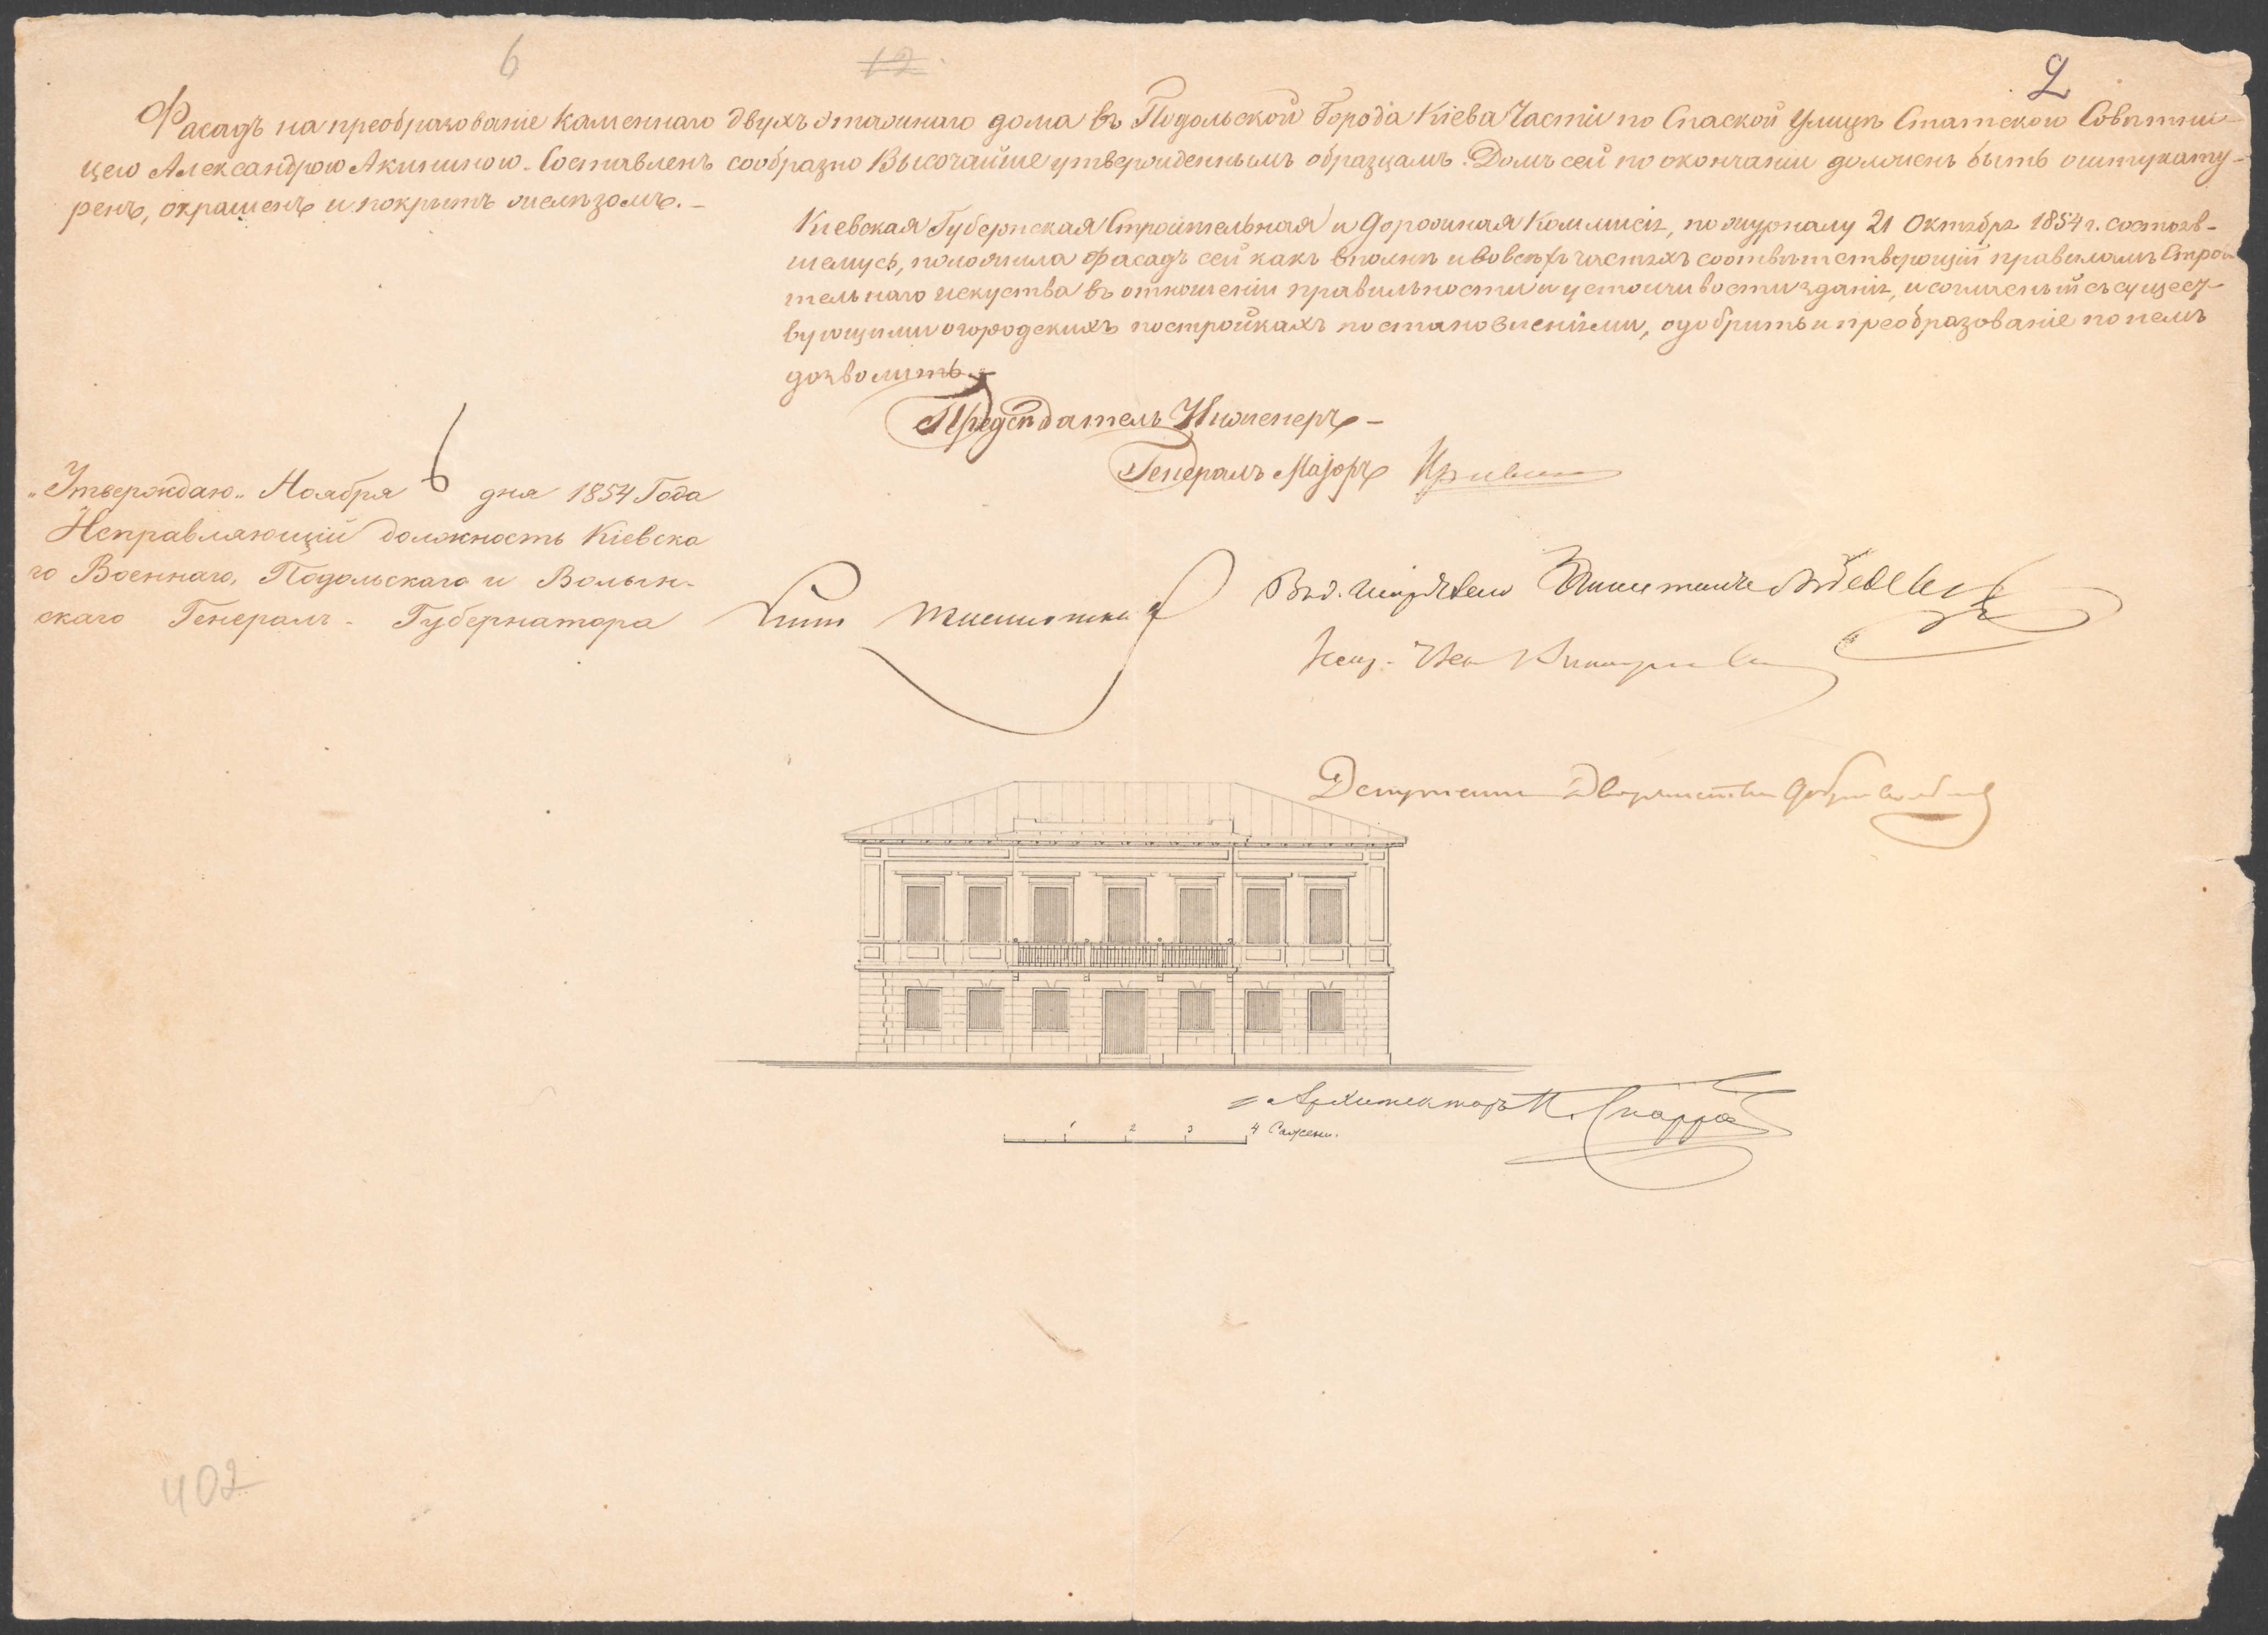 6
12
2
Фасадъ на преобразованіе каменнаго двухъэтажнаго дома въ Подольской Города Кіева Части по Спаской Улицѣ Статскою Совѣтни-
цею Александрою Акининою. Составленъ сообразно Высочайше утвержденнымъ образцамъ. Домъ сей по окончаніи долженъ быть оштукату-
ренъ, окрашенъ и покрытъ желѣзомъ.
Кіевская Губернская Строительная и Дорожная Коммисія, по журналу 21 Октября 1854 г. состояв-
шемуся, положила фасадъ сей какъ вполнѣ и во всѣхъ частяхъ соотвѣтствующій правиламъ Строи-
тельнаго искуства въ отношеніи правильности и устоичивости зданія, и согласный съ сущест-
вующими о городскихъ постройкахъ постановленіями, одобрить и преобразованіе по немъ
дозволить.
Предсѣдатель Инженеръ-
Генералъ Маіоръ
"Утверждаю" Ноября 6 дня 1854 Года
Исправляющій должность Кіевска
го Военнаго, Подольскаго и Волын-
скаго Генералъ-Губернатора
Депутатъ Дворянства
Архитекторъ П. Спарро
1 2 3 4 Сажени.
402